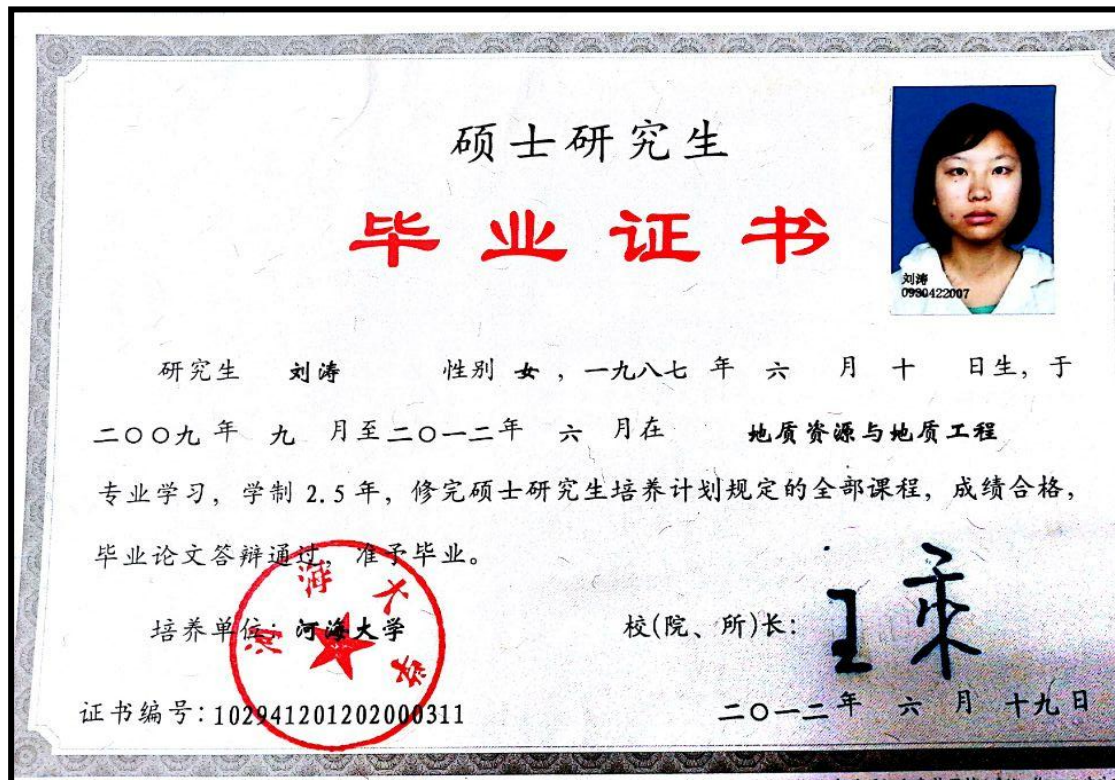 硕士研究生
毕业证书
刘涛
0930422007
研究生 刘涛 性别 女 ，一九八七 年 六 月 十 日生，于
二〇〇九 年 九 月至二〇一二年 六 月在 地质资源与地质工程
专业学习，学制 2.5 年，修完硕士研究生培养计划规定的全部课程，成绩合格，
毕业论文答辩通过，准予毕业。
河海大学
培养单位：河海大学 校(院、所)长：
证书编号：102941201202000311 二〇一二年 六 月 十九日